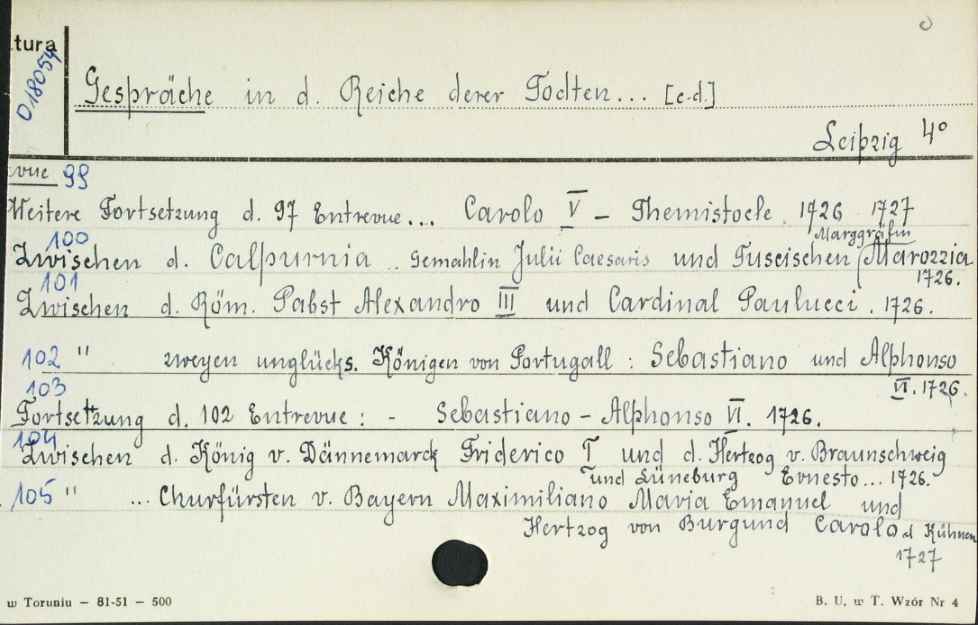 tura
018054
Gespräche in d. Reiche derer Todten... [c.d.]
Leipzig 4°
vue 99
Weitere Fortsetzung d. 97 Entrevue... Carolo V – Themistocle. 1726 1727
100 Marggräfin
Zwischen d. Calpurnia .. Gemahlin Julii Caesaris und Tuscischen Marozzia
101 1726.
Zwischen d. Röm. Pabst Alexandro III und Cardinal Paulucci. 1726.
102 " zweyen unglücks. Königen von Portugall : Sebastiano und Alphonso
103 VI. 1726.
Fortsetzung d. 102 Entrevue : - Sebastiano – Alphonso VI. 1726.
104
Zwischen d. König v. Dännemarck Friderico I und d. Hertzog v. Braunschweig
und Lüneburg Ernesto... 1726.
105 " ... Churfürsten v. Bayern Maximiliano Maria Emanuel und
Hertzog von Burgund Carolo d Kühnen
1727
w Toruniu – 81-51 – 500
B. U. w T. Wzór Nr 4